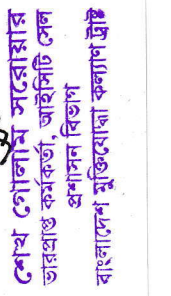 শেখ গোলাম সরোয়ার
ভারপ্রাপ্ত কর্মকর্তা, আইসিটি সেল
প্রশাসন বিভাগ
বাংলাদেশ মুক্তিযোদ্ধা কল্যাণ ট্রাষ্ট